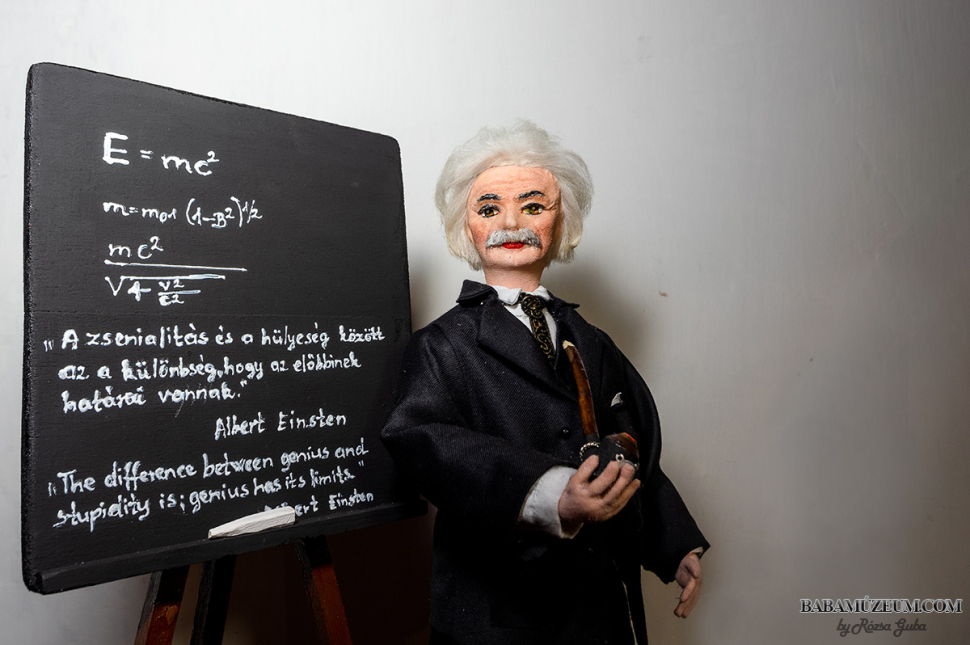 E = mc²
m=mo1 (1-B²)1/2
mc²
√1-v²/c²
„A zsenialitás és a hülyeség között
az a különbség, hogy az előbbinek
határai vannak."
Albert Einsten
„The difference between genius and
stupidity is; genius has its limits."
Albert Einsten
BABAMÚZEUM.COM
by Rózsa Guba